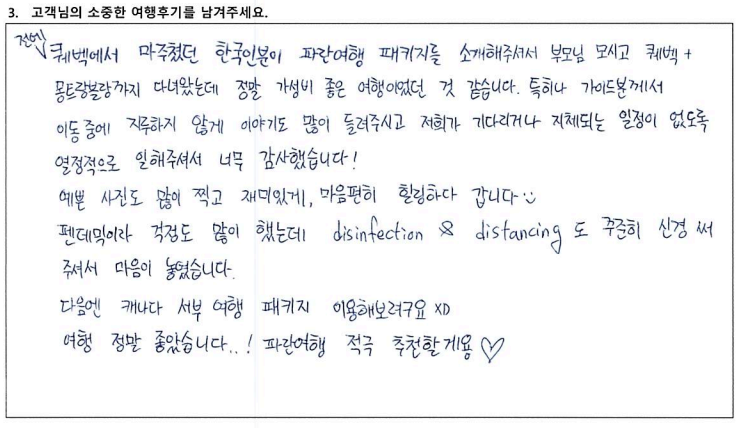 3. 고객님의 소중한 여행후기를 남겨주세요.
전에 퀘벡에서 마주쳤던 한국인분이 파란여행 패키지를 소개해주셔서 부모님 모시고 퀘벡 +
몽트랑블랑까지 다녀왔는데 정말 가성비 좋은 여행이었던 것 같습니다. 특히나 가이드분께서
이동 중에 지루하지 않게 이야기도 많이 들려주시고 저희가 기다리거나 지체되는 일정이 없도록
열정적으로 일해주셔서 너무 감사했습니다!
예쁜 사진도 많이 찍고 재미있게, 마음편히 힐링하다 갑니다 :)
펜데믹이라 걱정도 많이 했는데 disinfection & distancing 도 꾸준히 신경 써
주셔서 마음이 놓였습니다.
다음엔 캐나다 서부 여행 패키지 이용해보려구요 XD
여행 정말 좋았습니다..! 파란여행 적극 추천할게용 ♡